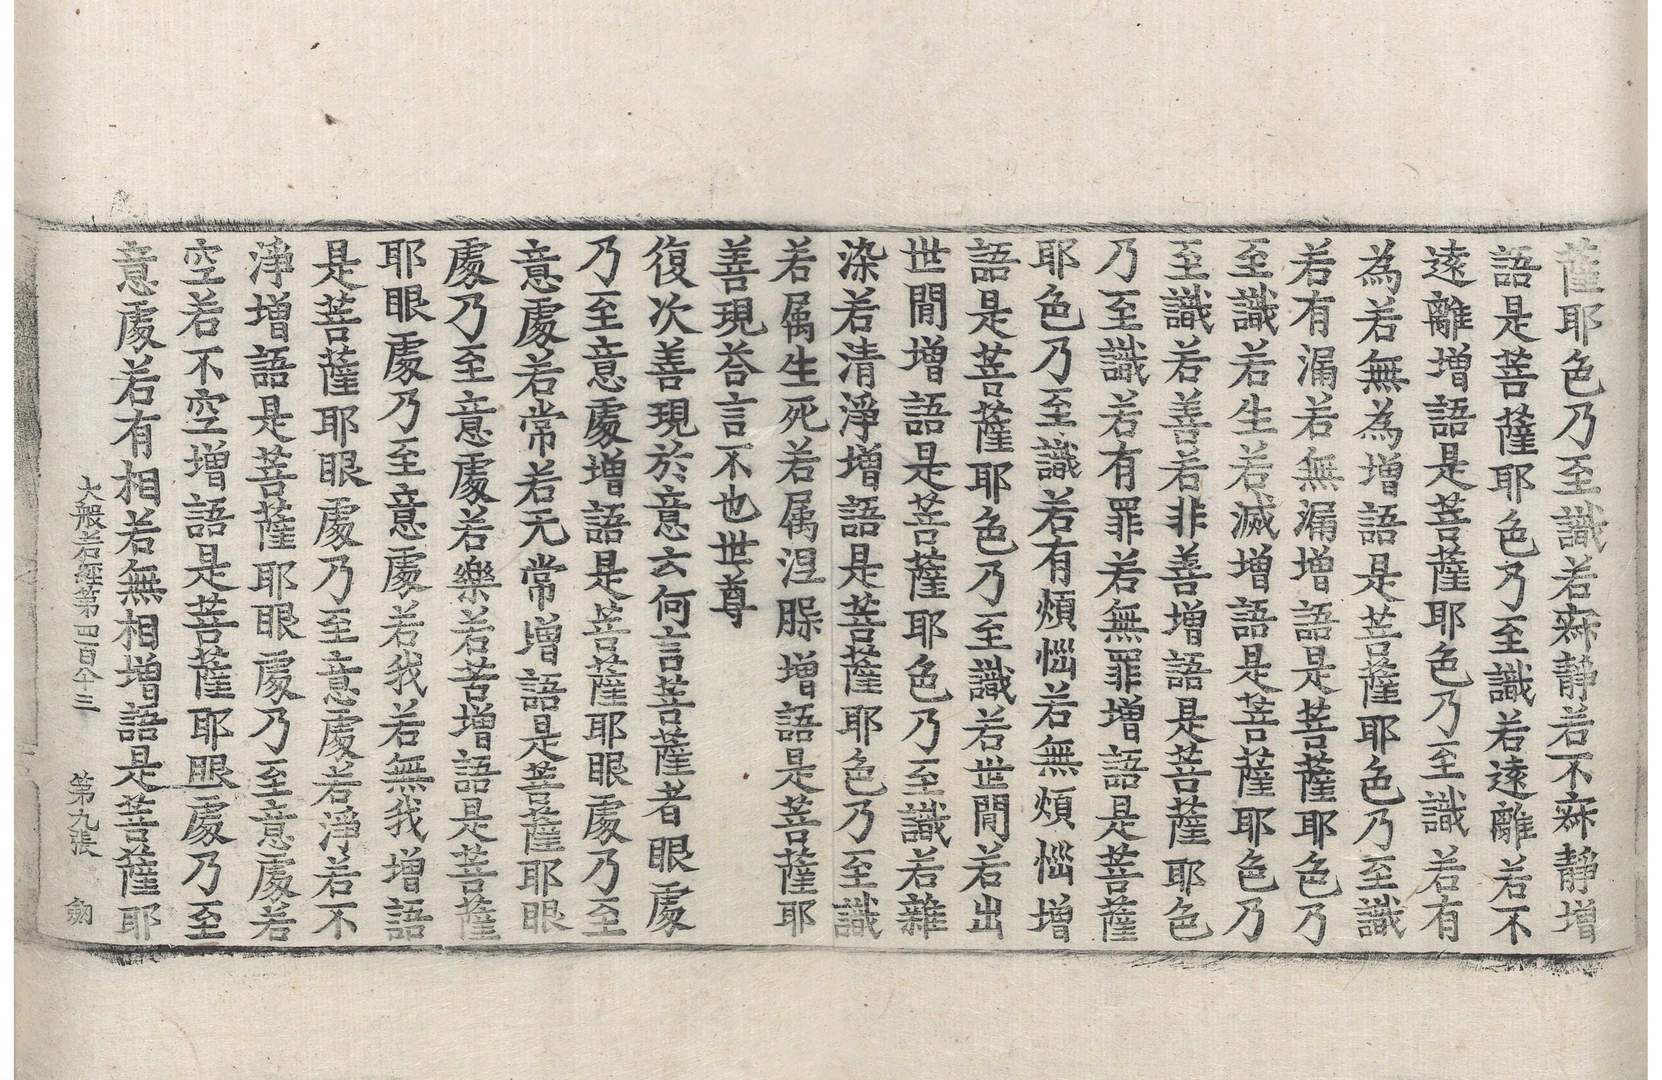 薩耶色乃至識若寂静若不寂静增
語是菩薩耶色乃至識若遠離若不
遠離增語是菩薩耶色乃至識若有
為若無為增語是菩薩耶色乃至識
若有漏若無漏增語是菩薩耶色乃
至識若生若滅增語是菩薩耶色乃
至識若善若非善增語是菩薩耶色
乃至識若有罪若無罪增語是菩薩
耶色乃至識若有煩惱若無煩惱增
語是菩薩耶色乃至識若世閒若出
世閒增語是菩薩耶色乃至識若雜
染若清淨增語是菩薩耶色乃至識
若属生死若属涅槃增語是菩薩耶
善現荅言不也世尊
復次善現於意云何言菩薩者眼處
乃至意處增語是菩薩耶眼處乃至
意處若常若无常增語是菩薩耶眼
處乃至意處若樂若苦增語是菩薩
耶眼處乃至意處若我若無我增語
是菩薩耶眼處乃至意處若淨若不
淨增語是菩薩耶眼處乃至意處若
空若不空增語是菩薩耶眼處乃至
意處若有相若無相增語是菩薩耶
大般若經第四百八十三 第九張 劒